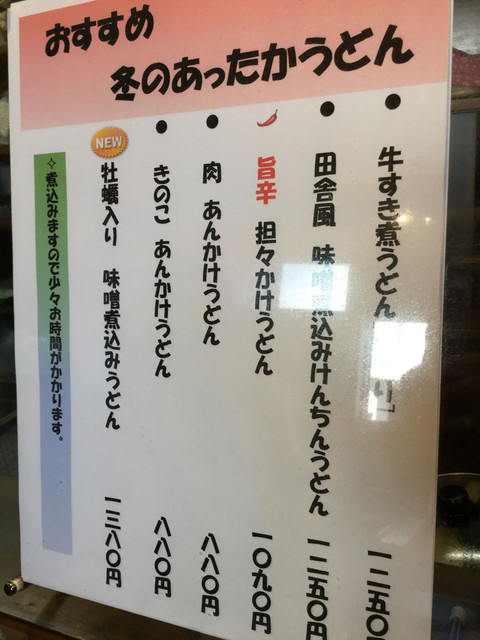 おすすめ
冬のあったかうどん
牛すき煮うどん り」 一二五〇
田舎風 味噌煮込みけんちんうどん 一二五〇円
旨辛 担々かけうどん 一〇九〇円
肉 あんかけうどん 八八〇円
きのこ あんかけうどん 八八〇円
NEW
牡蠣入り 味噌煮込みうどん 一三八〇円
✧煮込みますので少々お時間がかかります。